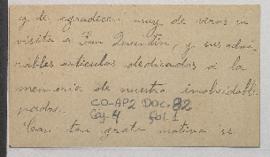 y de agradecer muy de veras su
visita a San Quintín, y sus admi-
rables artículos dedicados a la
memoria de nuestro inolvidable
padre.
CO-AP2 DOC. 82
Caj. 4 fol. 1
Con tan grato motivo se